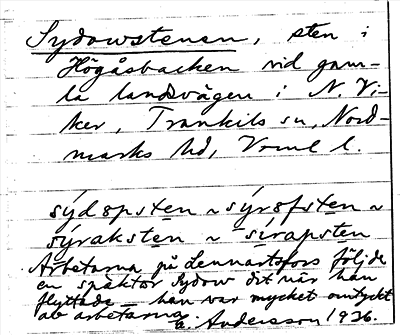 Sydowstenen, sten i
Högåsbacken vid gam-
la landsvägen i N. Vi-
ker, Trankils sn, Nord-
marks hd, Vrml l.
sydǝpsten ~ syrǝfsten ~
syraksten ~ sirapsten
Arbetarna på Lennartsfors följde
en späktor Sydow dit när han
flyttade – han var mycket omtyckt
av arbetarna.
E. Andersson 1936.